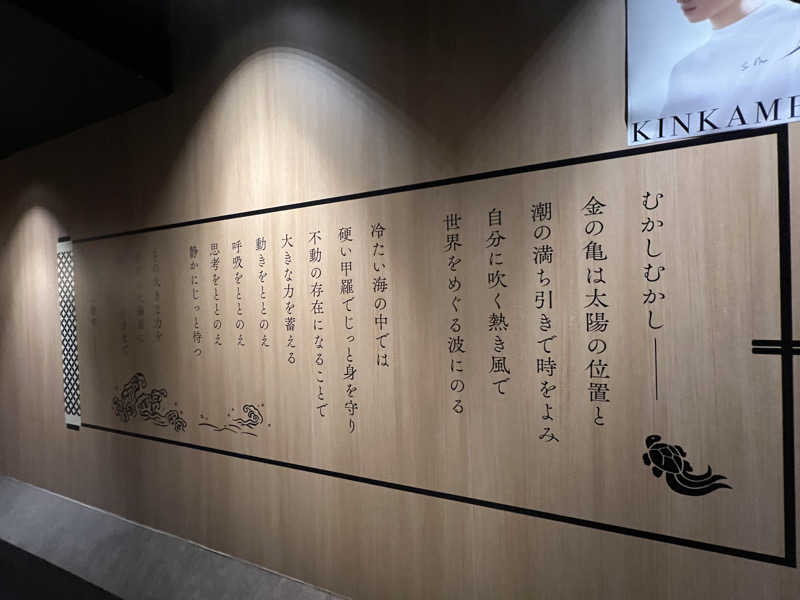 むかしむかし――
金の亀は太陽の位置と
潮の満ち引きで時をよみ
自分に吹く熱き風で
世界をめぐる波にのる
冷たい海の中では
硬い甲羅でじっと身を守り
不動の存在になることで
大きな力を蓄える
動きをととのえ
呼吸をととのえ
思考をととのえ
静かにじっと待つ
その大きな力を
KINKAME